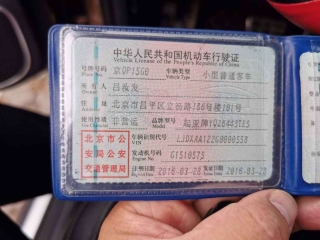 中华人民共和国机动车行驶证
Vehicle License of the People's Republic of China
号牌号码 京QP15G0 车辆类型 小型普通客车
Plate No. Vehicle Type
所有人 吕汝发
住址 北京市昌平区立汤路186号楼101号
使用性质 非营运 品牌型号
Model
北京市公 车辆识别代号
VIN
安局公安 发动机号码
Engine No.
交通管理局 注册日期 2016-03-28 发证日期 2016-03-28